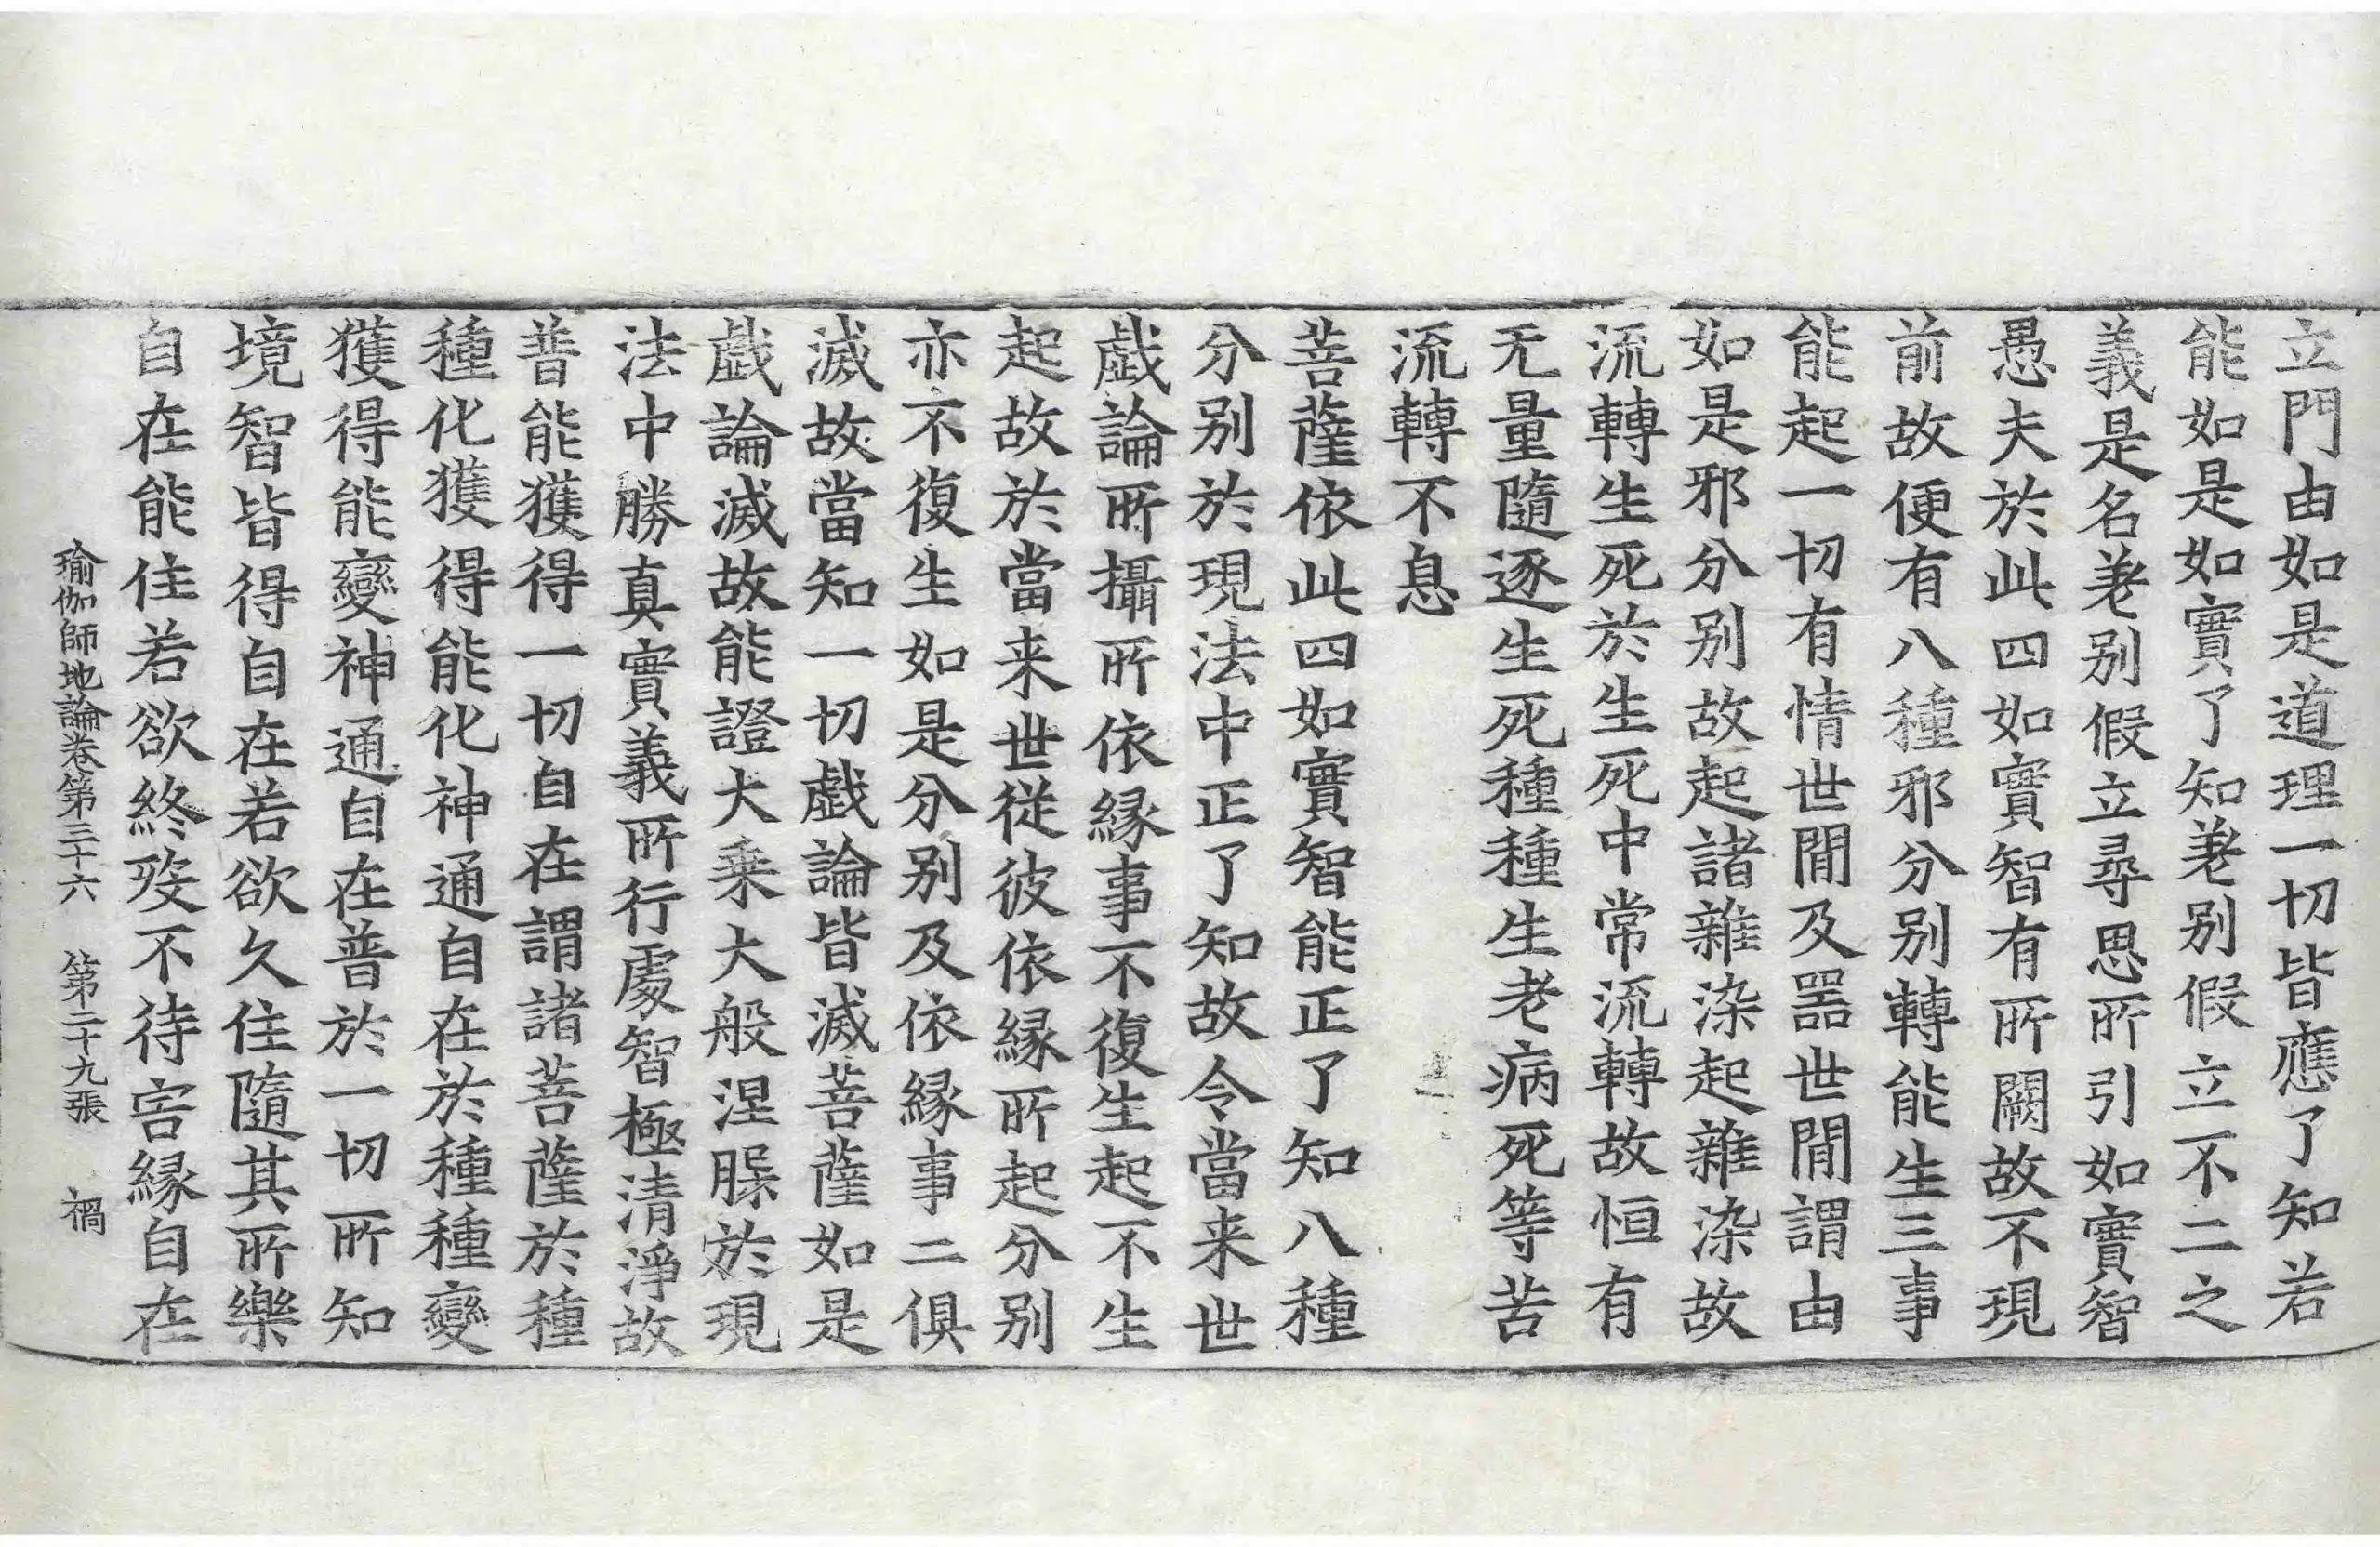 立門由如是道理一切皆應了知若
能如是如實了知差别假立不二之
義是名差别假立尋思所引如實智
愚夫於此四如實智有所闕故不現
前故便有八種邪分别轉能生三事
能起一切有情世閒及器世閒謂由
如是邪分别故起諸雜染起雜染故
流轉生死於生死中常流轉故恒有
无量隨逐生死種種生老病死等苦
流轉不息
菩薩依此四如實智能正了知八種
分别於現法中正了知故令當来世
戱論所攝所依縁事不復生起不生
起故於當来世從彼依縁所起分别
亦不復生如是分别及依縁事二俱
滅故當知一切戱論皆滅菩薩如是
戱論滅故能證大乗大般涅槃於現
法中勝真實義所行處智極清淨故
普能獲得一切自在謂諸菩薩於種
種化獲得能化神通自在於種種變
獲得能變神通自在普於一切所知
境智皆得自在若欲久住隨其所樂
自在能住若欲終歿不待害縁自在
瑜伽師地論卷第三十六　第二十九張　禍